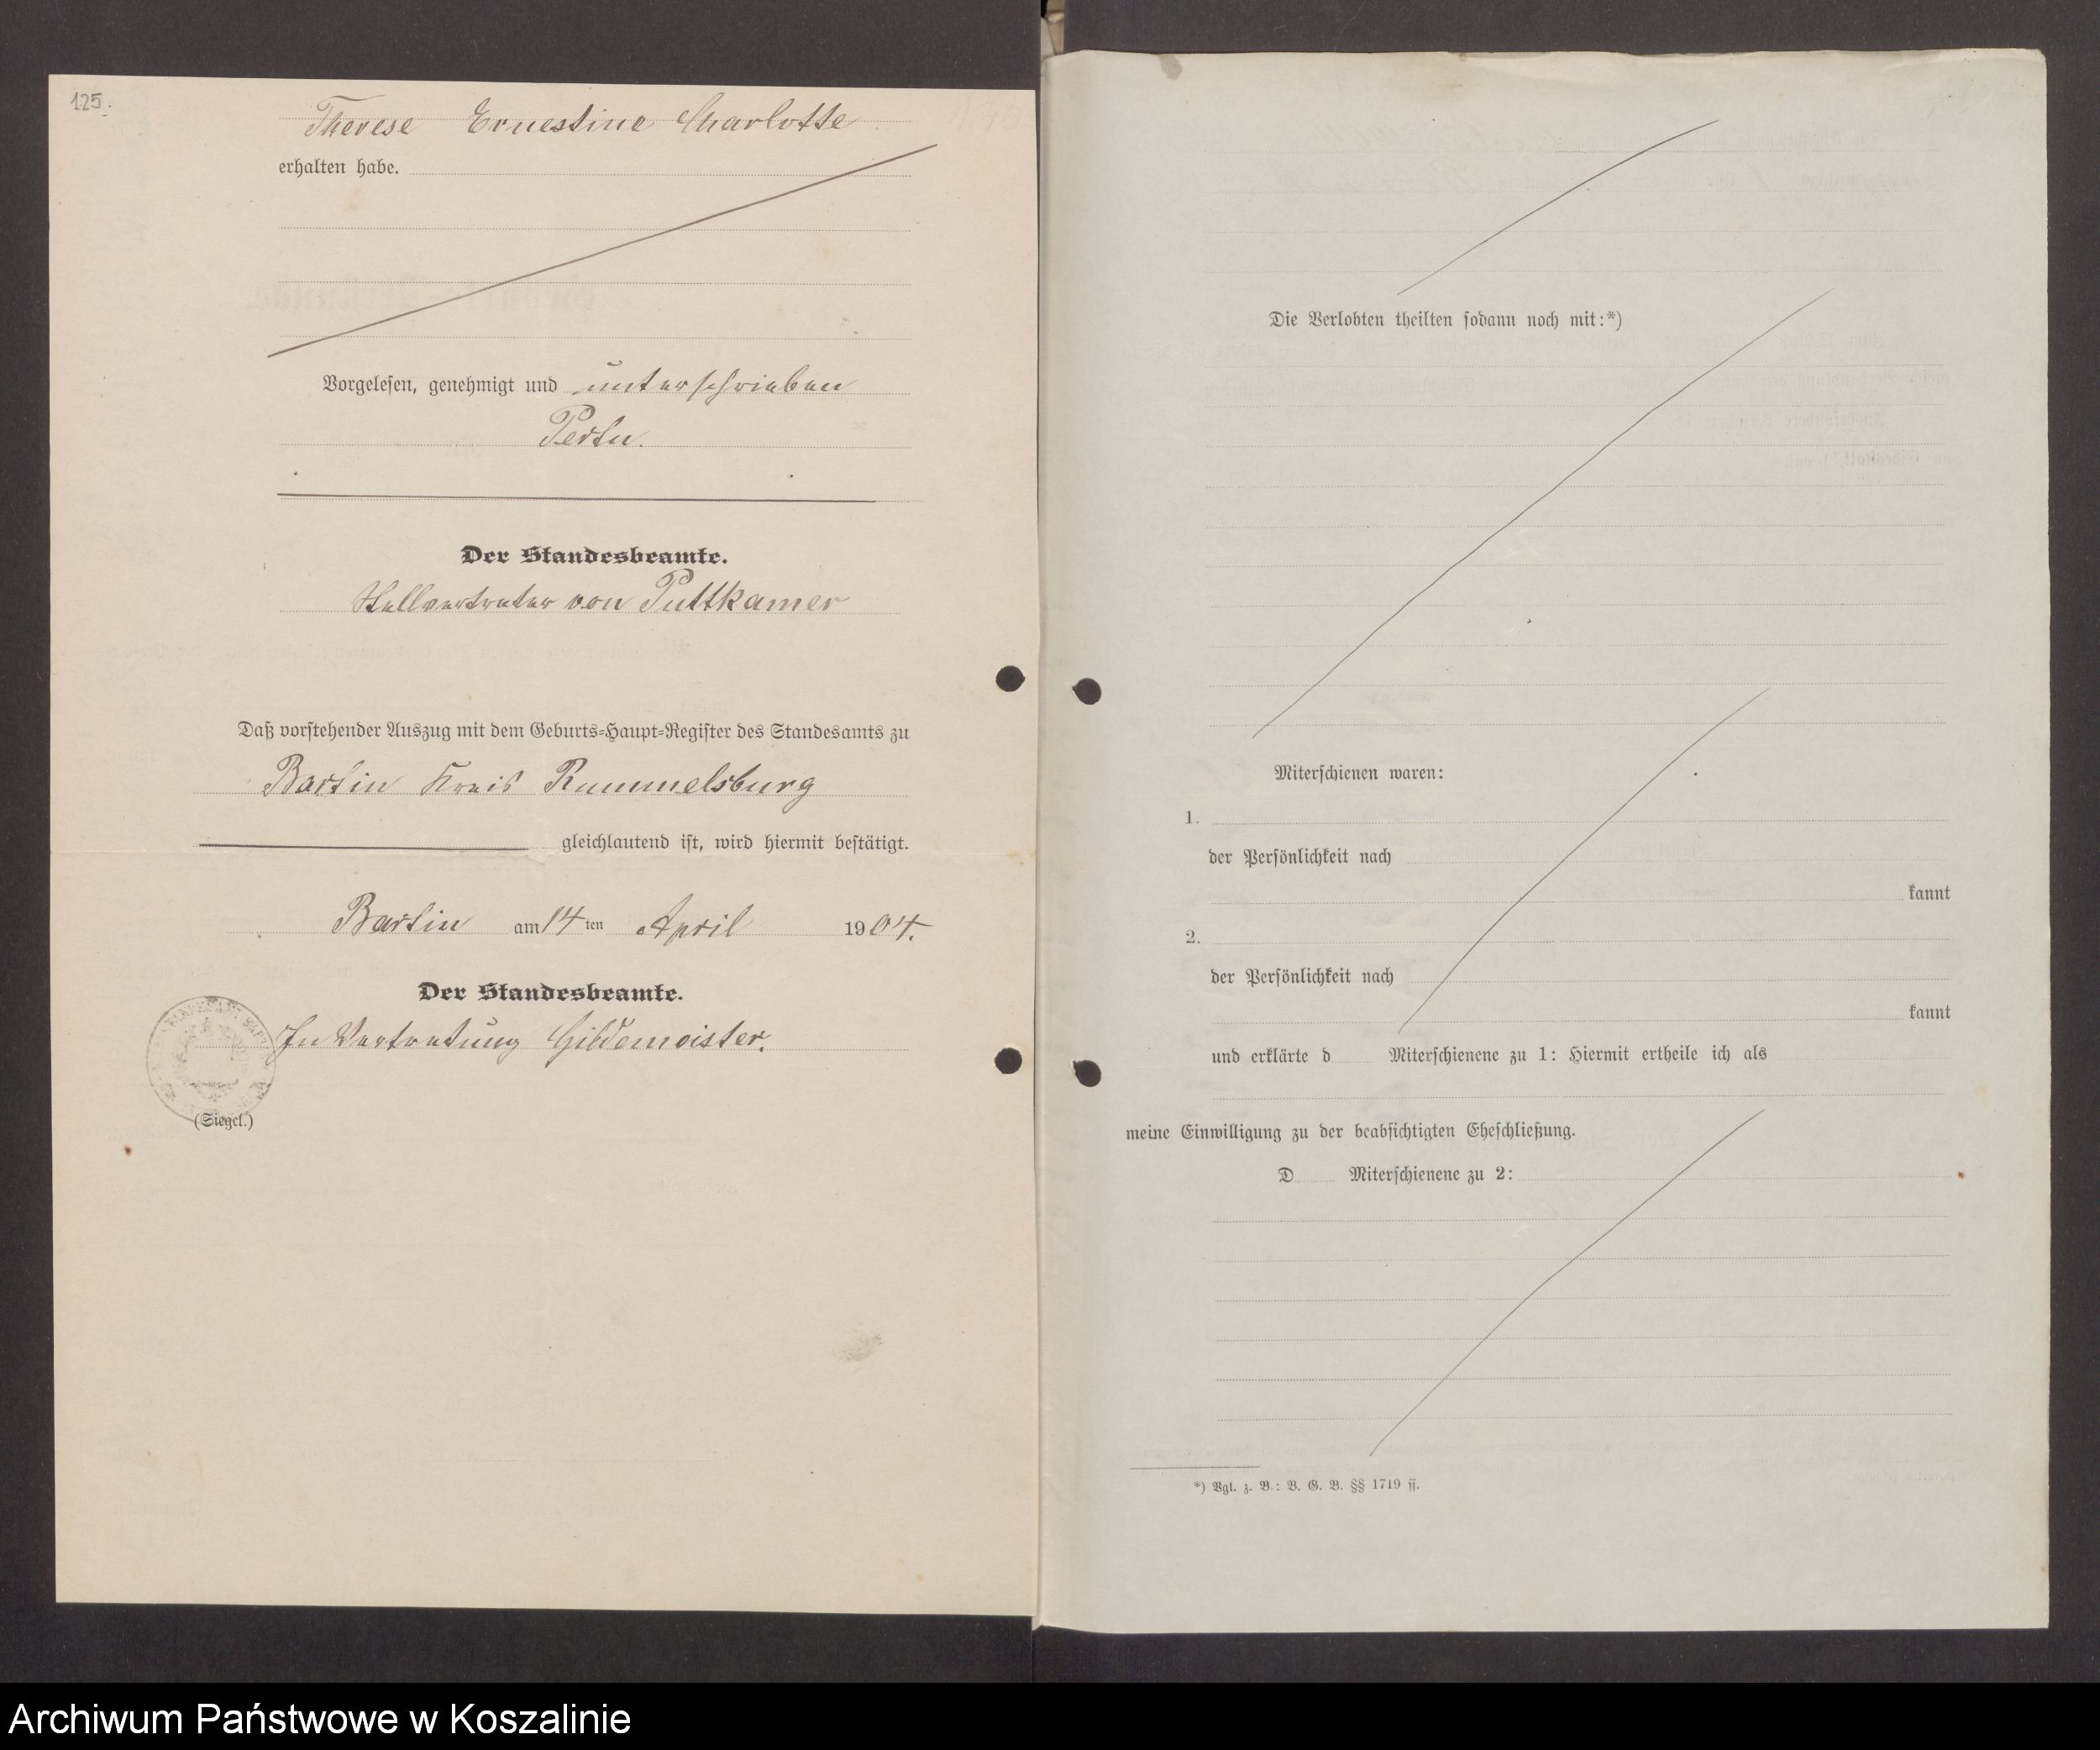 125.
Therese Ernestine Charlotte
erhalten habe.
Vorgelesen, genehmigt und unterschrieben
Der Standesbeamte.
Stellvertreter von Puttkamer
Daß vorstehender Auszug mit dem Geburts-Haupt-Register des Standesamts zu
Bartin Kreis Rummelsburg
gleichlautend ist, wird hiermit bestätigt.
Bartin am 14ten April 1904.
Der Standesbeamte.
In Vertretung Gildemeister.
(Siegel.)
Die Verlobten theilten sodann noch mit:*)
Miterschienen waren:
1.
der Persönlichkeit nach
kannt
2.
der Persönlichkeit nach
kannt
und erklärte d Miterschienene zu 1: Hiermit ertheile ich als
meine Einwilligung zu der beabsichtigten Eheschließung.
D Miterschienene zu 2:
*) Vgl. z. B.: B. G. B. §§ 1719 ff.
Archiwum Państwowe w Koszalinie